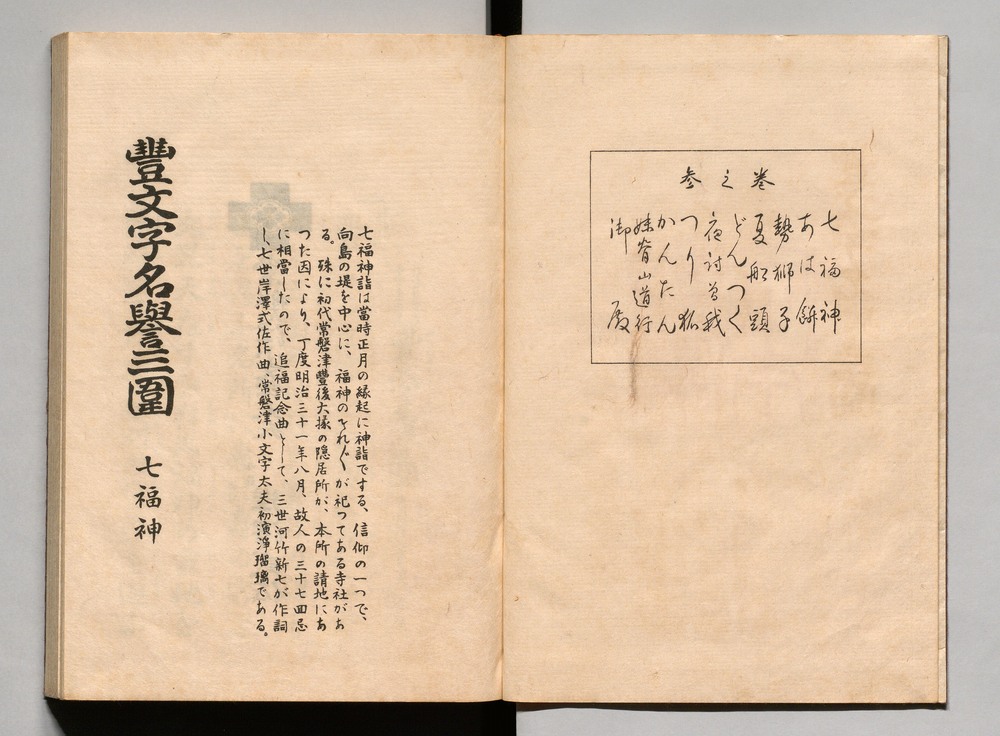 参之巻
七福神
あは餅
勢獅子
夏船頭
どんつく
夜討曽我
つり狐
かんたん
妹脊山道行
御殿
七福神詣は當時正月の縁起に神詣でする、信仰の一つで、
向島の堤を中心に、福神のそれ〲が祀つてある寺社があ
る。殊に初代常磐津豐後大掾の隠居所が、本所の請地にあ
つた因により、丁度明治三十一年八月、故人の三十七回忌
に相當したので、追福記念曲として、三世河竹新七が作詞
し、七世岸澤式佐作曲、常磐津小文字太夫初演浄瑠璃である。
豐文字名譽三圍 七福神